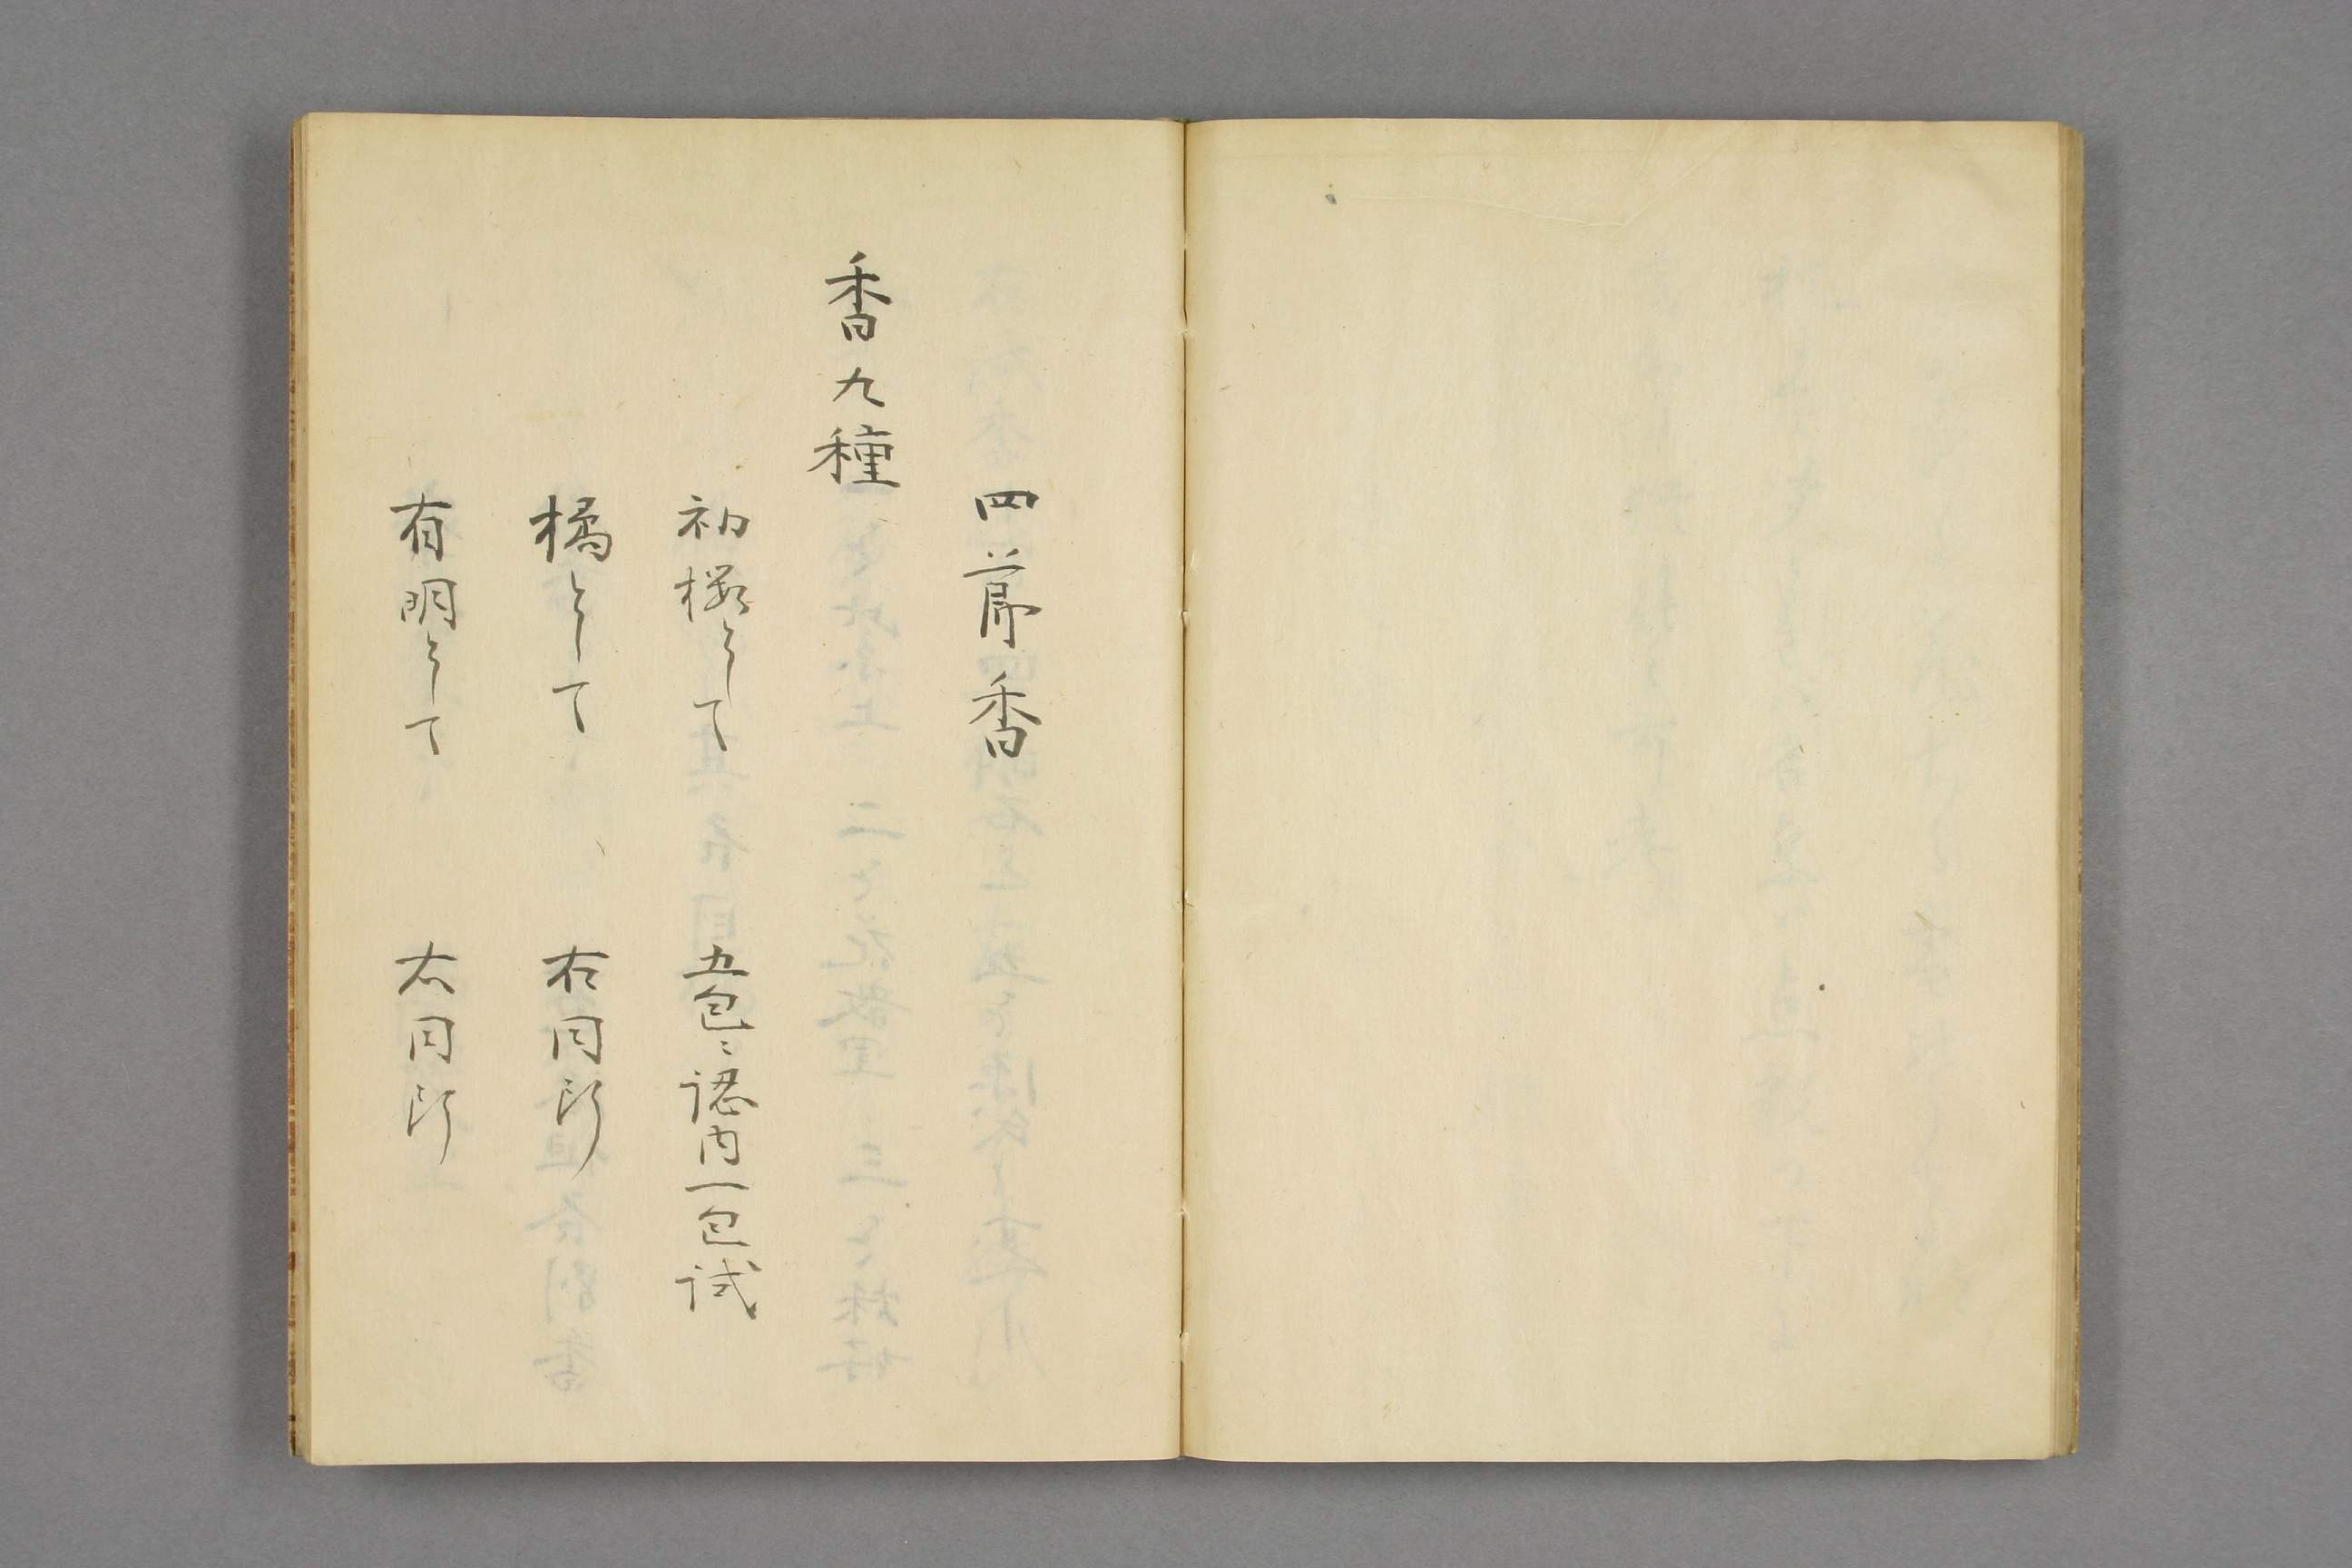 四莭香
香九種
初櫻として 五包ニ認内一包試
橘として 右同断
有明として 右同断